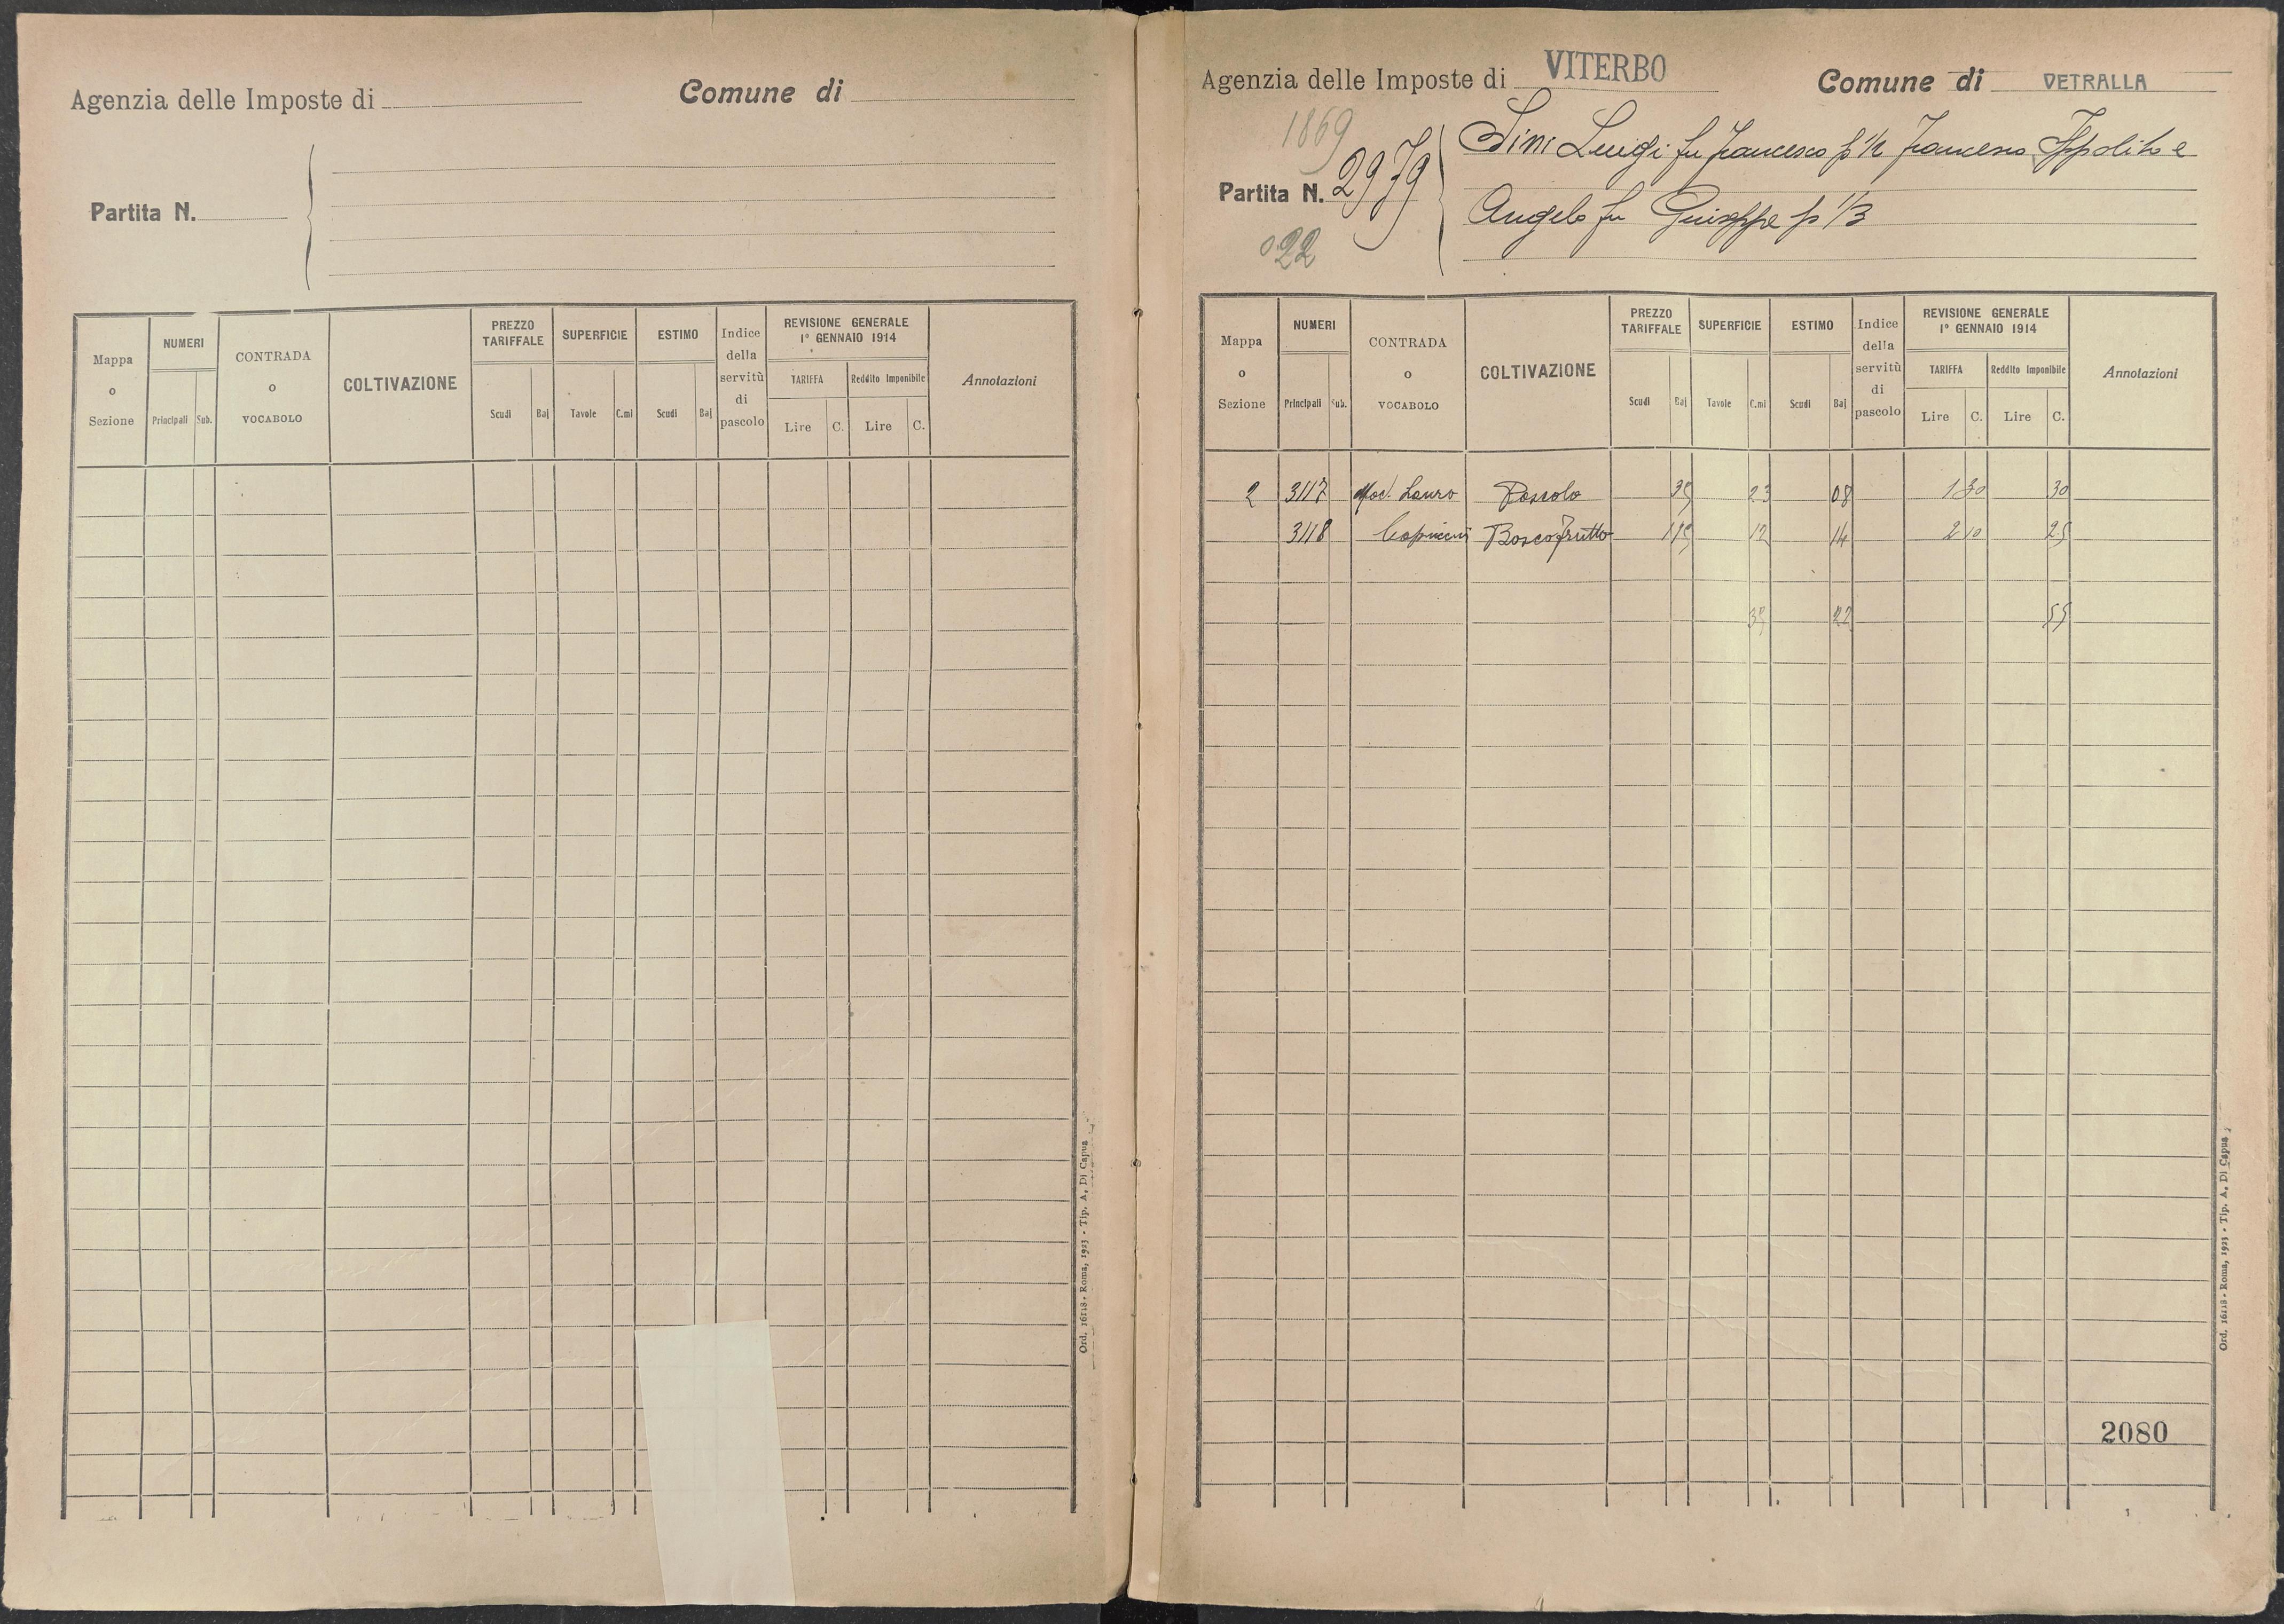 Agenzia delle Imposte di
Comune di
Partita N.
Mappa o Sezione
NUMERI
Principali Sub.
CONTRADA o VOCABOLO
COLTIVAZIONE
PREZZO TARIFFALE
Scudi Baj
SUPERFICIE
Tavole C.mi
ESTIMO
Scudi Baj
Indice della servitù di pascolo
REVISIONE GENERALE
1° GENNAIO 1914
TARIFFA
Lire C.
Reddito Imponibile
Lire C.
Annotazioni
Ord. 16118 - Roma, 1923 - Tip. A. Di Capua
Agenzia delle Imposte di VITERBO
Comune di VETRALLA
1869
Partita N. 2979
022
Sini Luigi fu Francesco p 1/2 Francesco Ippolito e
Angelo fu Giuseppe p 1/3
Mappa o Sezione
NUMERI
Principali Sub.
CONTRADA o VOCABOLO
COLTIVAZIONE
PREZZO TARIFFALE
Scudi Baj
SUPERFICIE
Tavole C.mi
ESTIMO
Scudi Baj
Indice della servitù di pascolo
REVISIONE GENERALE
1° GENNAIO 1914
TARIFFA
Lire C.
Reddito Imponibile
Lire C.
Annotazioni
2 3117 Lauro 35 23 08 1 30 30
3118 Boscofrutto 115 12 14 2 10 25
35 22 55
2080
Ord. 16118 - Roma, 1923 - Tip. A. Di Capua